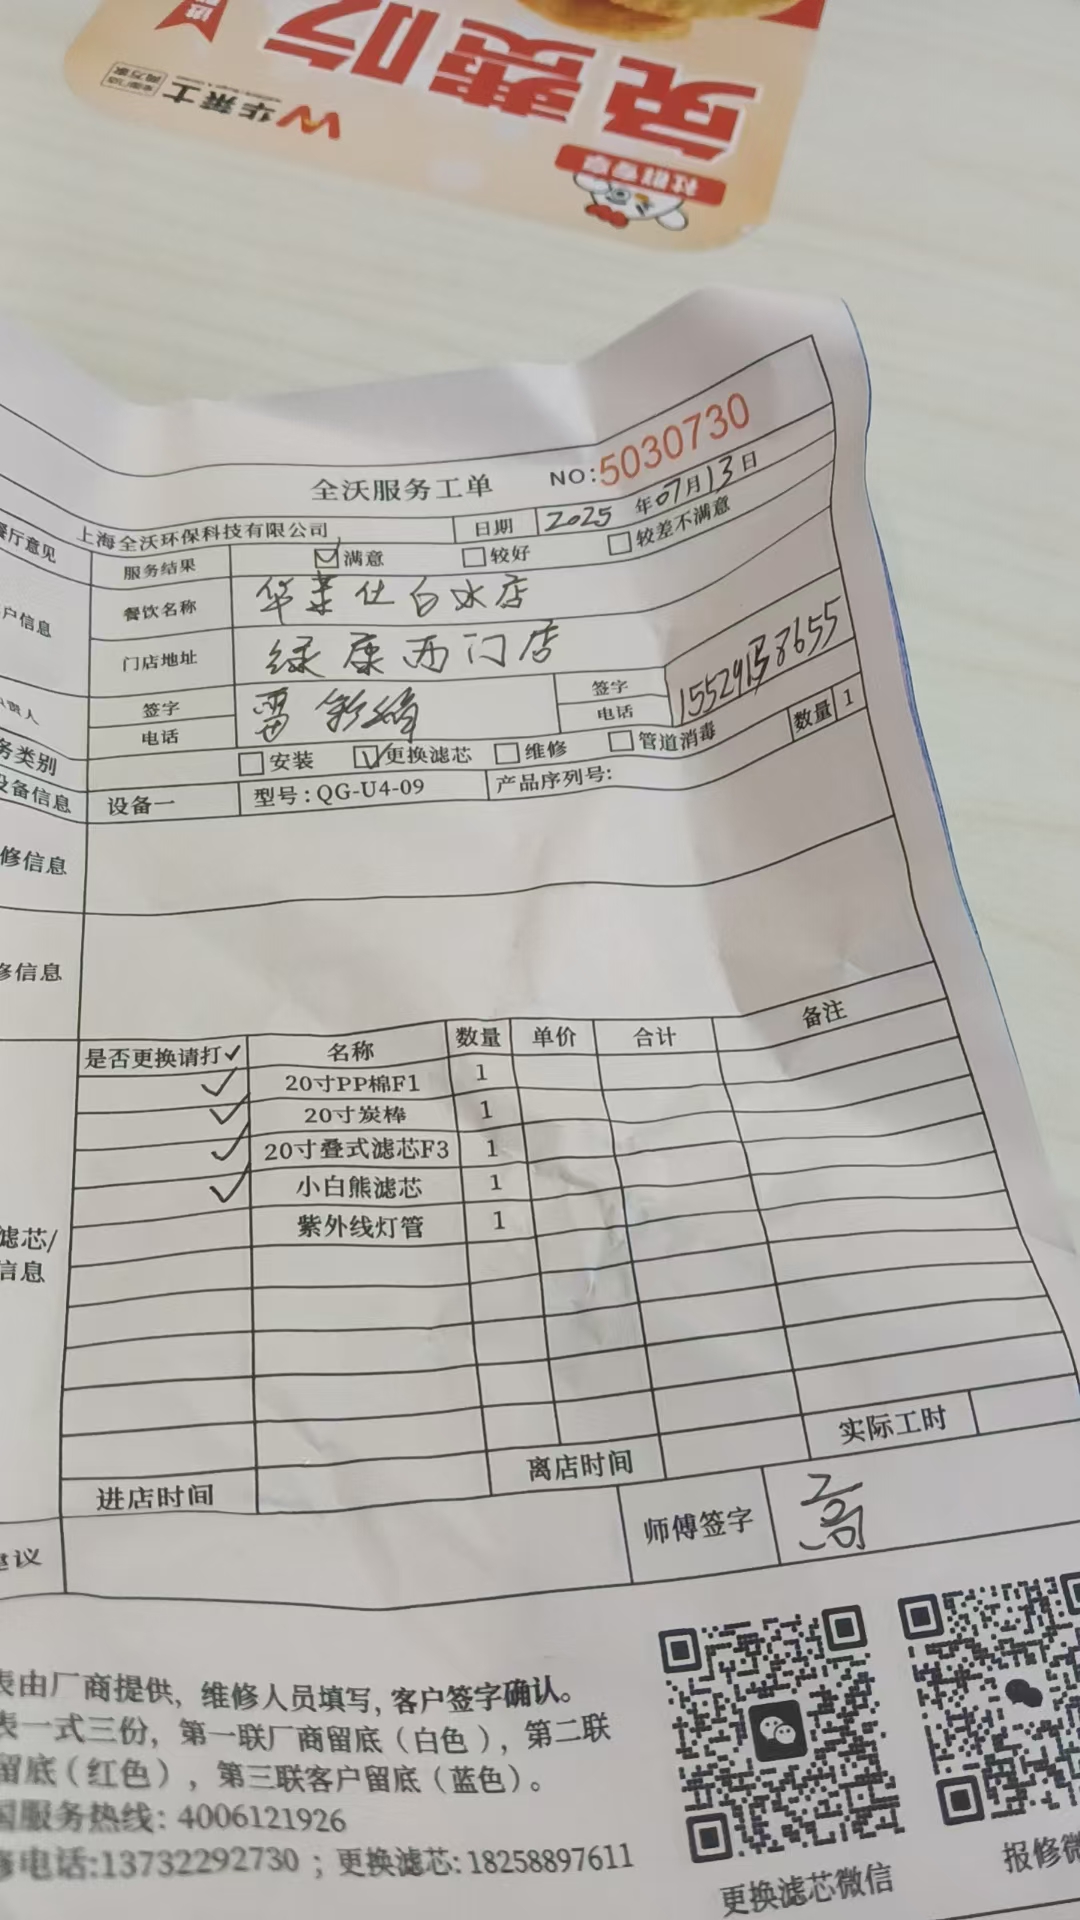 免费吃
华莱士
社群专享
全沃服务工单 NO:5030730
餐厅意见 上海全沃环保科技有限公司 日期 2025年07月13日
服务结果 满意 较好 较差不满意
户信息 餐饮名称 华莱仕白水店
门店地址 绿康西门店
责人 签字 雷 签字
电话 电话
务类别 安装 更换滤芯 维修 管道消毒 数量 1
设备信息 设备一 型号:QG-U4-09 产品序列号:
修信息
修信息
是否更换请打✓ 名称 数量 单价 合计 备注
✓ 20寸PP棉F1 1
✓ 20寸炭棒 1
✓ 20寸叠式滤芯F3 1
✓ 小白熊滤芯 1
紫外线灯管 1
滤芯/
信息
进店时间 离店时间 实际工时
建议 师傅签字 高
表由厂商提供,维修人员填写,客户签字确认。
表一式三份,第一联厂商留底(白色),第二联
留底(红色),第三联客户留底(蓝色)。
国服务热线:4006121926
修电话:13732292730;更换滤芯:18258897611
更换滤芯微信
报修微